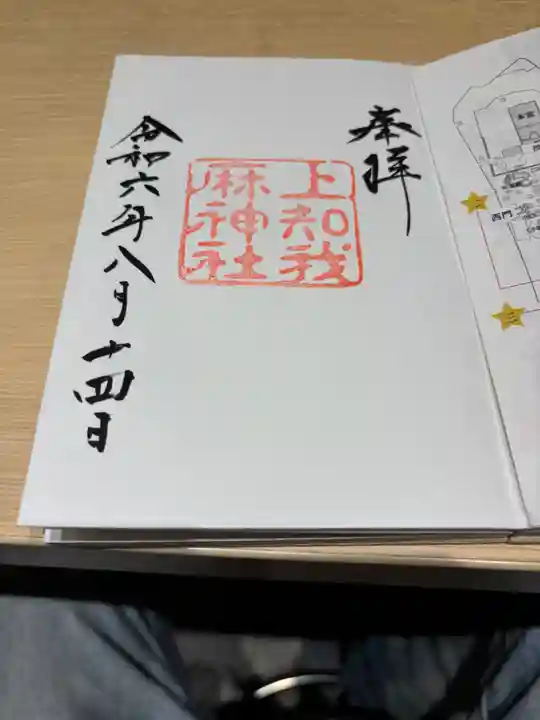 奉拝
上知我
麻神社
令和六年八月十四日
西門